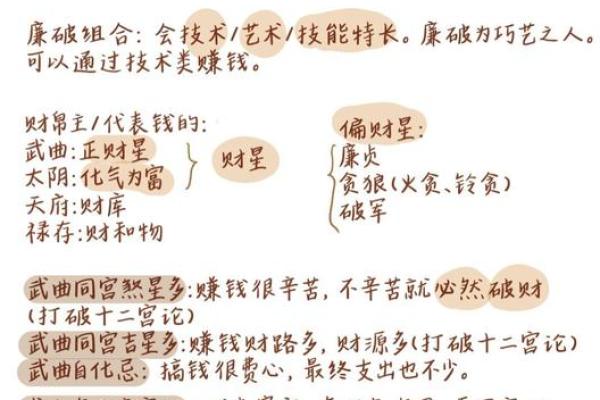 廉破组合：会技术/艺术/技能特长。廉破为巧艺之人。
可以通过技术类赚钱。
财帛主/代表钱的：
武曲：正财星
太阴：化气为富
天府：财库
禄存：财和物
财星
偏财星：
廉贞
贪狼（火贪、铃贪）
破军
武曲同宫煞星多：赚钱很辛苦，不辛苦就必然破财
（打破十二宫论）
武曲同宫吉星多：赚钱财路多，财源多（打破十二宫论）
武曲自化忌：搞钱很费心，最终支出也不少。